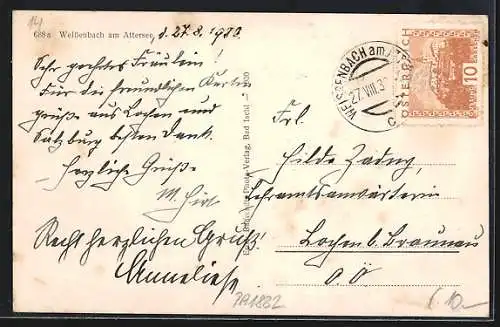 14
688a Weißenbach am Attersee, d. 27.8.1930.
Sehr geehrtes Fräulein!
Für die freundlichen Karten-
grüße aus Lochen und
Salzburg besten Dank.
Herzliche Grüße
M. Hirt
Recht herzlichen Gruß!
Anneliese.
Verlag, Bad Ischl
WEISSENBACH am
27.VIII.3
ÖSTERREICH
10
Frl.
Hilda Zadny
Lehramtsanwärterin
Lochen b. Braunau
O.Ö
PA1882
€ 10.-